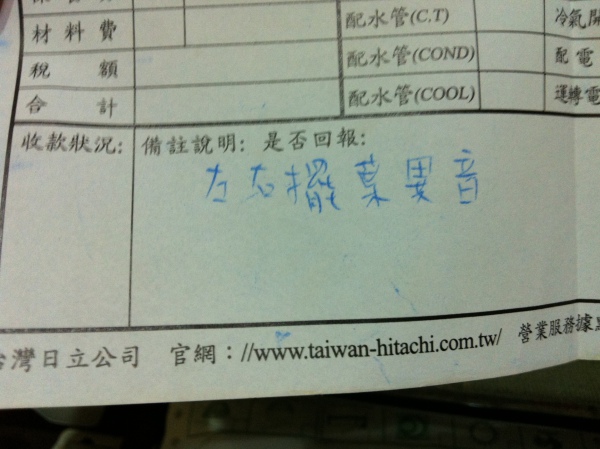 材料費 配水管(C.T) 冷氣開
稅額 配水管(COND) 配電
合計 配水管(COOL) 運轉電
收款狀況: 備註說明: 是否回報:
左右擺葉異音
台灣日立公司 官網：//www.taiwan-hitachi.com.tw/ 營業服務據點